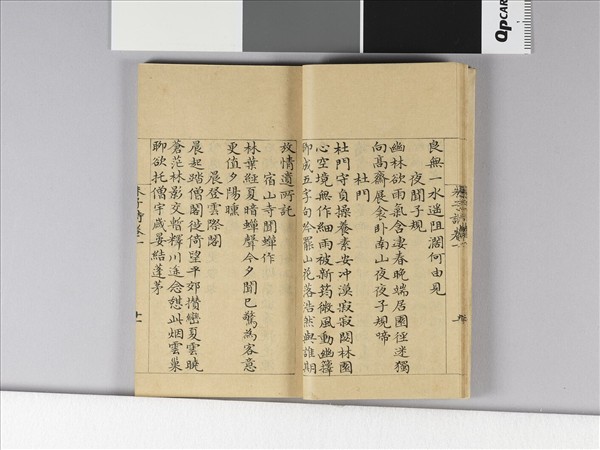 良無一水遥阻濶何由見
夜聞子規
幽林欲雨氣含凄春晚端居園徑迷獨
向高齋展衾卧南山夜夜子規啼
杜門
杜門守貞操養素安冲漠寂寂閟林園
心空境無作細雨被新筠微風動幽籜
聊成五字句吟罷山花落浩然與誰期
放情遺所託
宿山寺聞蟬作
林葉經夏暗蟬聲今夕聞已驚為客意
更值夕陽曛
晨登雲際閣
晨起踏僧閣徙倚望平郊攢巒夏雲曉
蒼茫林影交暫釋川途念憇此烟雲巢
聊欲托僧宇歲晏結蓬茅
朱子詩卷一
十一
QpCARD